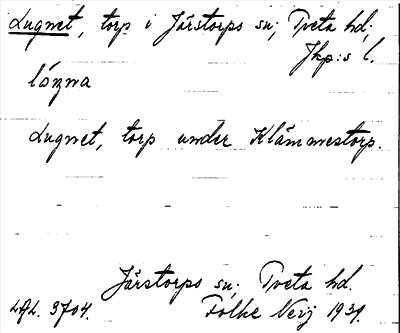 Lugnet, torp i Järstorps sn; Tveta hd;
Jkp:s l.
Lugnet, torp under Klämmestorp.
Järstorps sn. Tveta hd.
LAL. 3704. Folke Neij 1931.